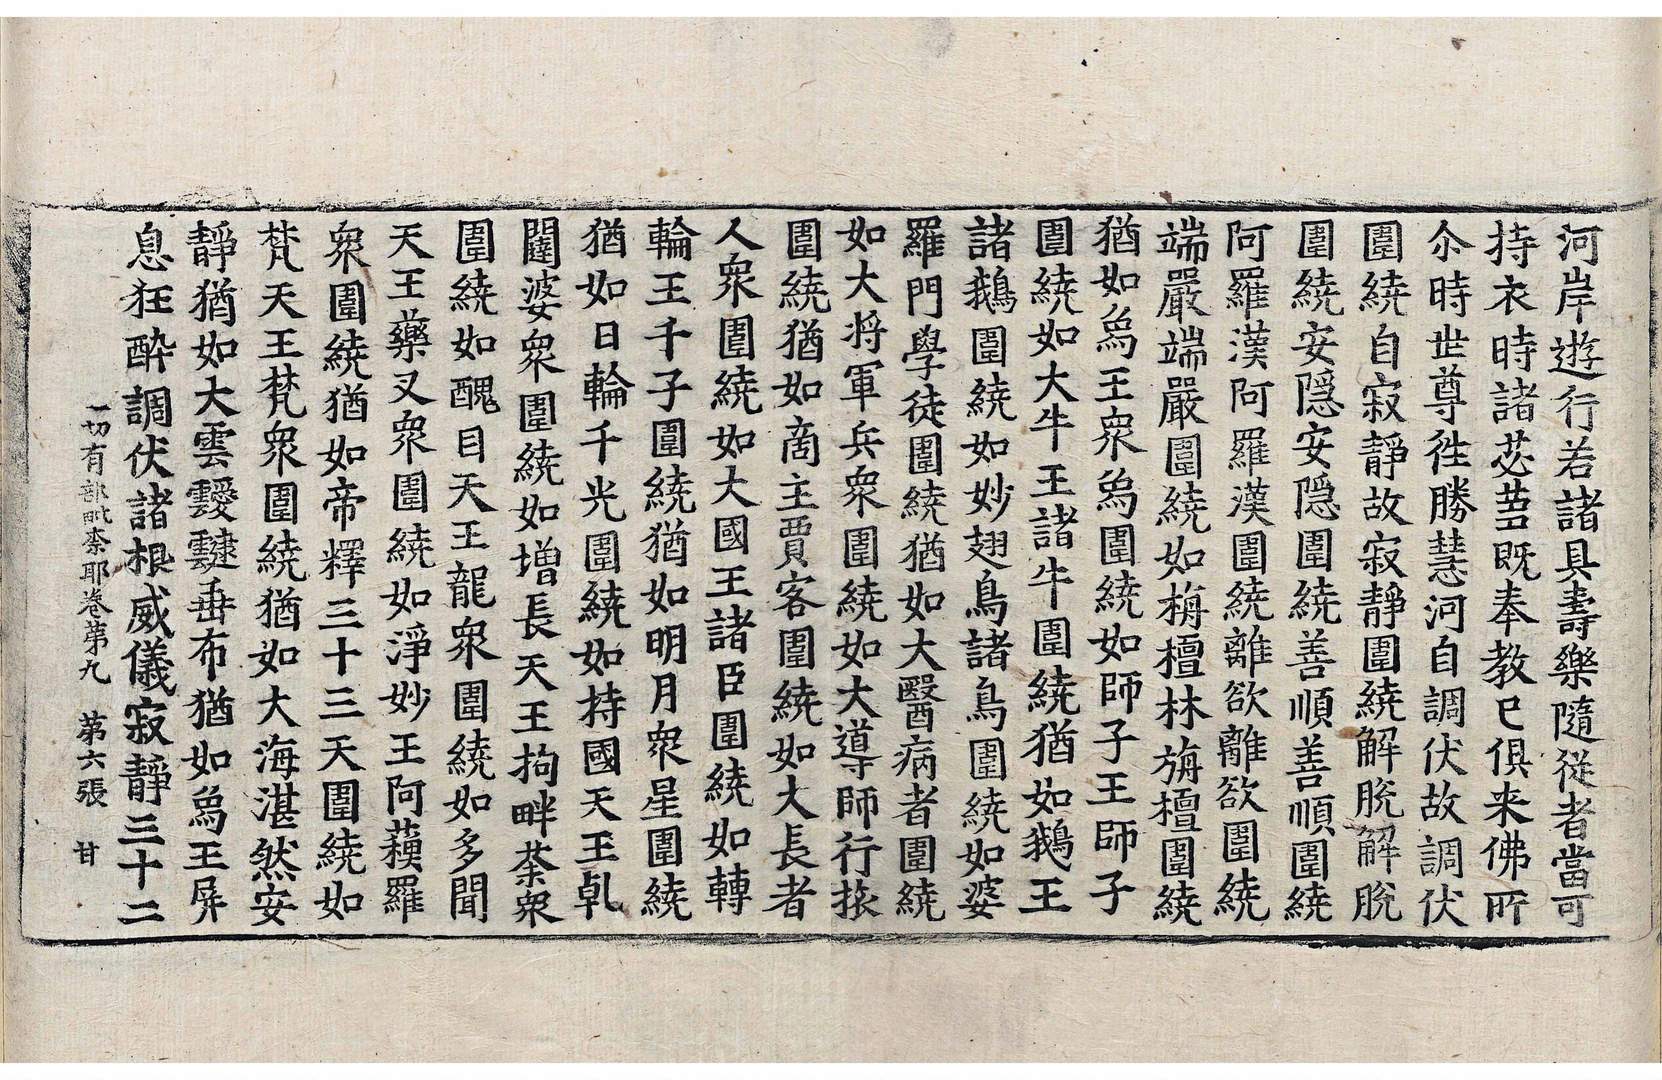 河岸遊行若諸具壽樂隨從者當可
持衣時諸苾芻既奉教已俱来佛所
尒時世尊徃勝慧河自調伏故調伏
圍繞自寂靜故寂靜圍繞解脫解脫
圍繞安隱安隱圍繞善順善順圍繞
阿羅漢阿羅漢圍繞離欲離欲圍繞
端嚴端嚴圍繞如栴檀林旃檀圍繞
猶如烏王衆烏圍繞如師子王師子
圍繞如大牛王諸牛圍繞猶如鵝王
諸鵝圍繞如妙翅鳥諸鳥圍繞如婆
羅門學徒圍繞猶如大醫病者圍繞
如大将軍兵衆圍繞如大導師行旅
圍繞猶如啇主賈客圍繞如大長者
人衆圍繞如大國王諸臣圍繞如轉
輪王千子圍繞猶如明月衆星圍繞
猶如日輪千光圍繞如持國天王乹
闥婆衆圍繞如增長天王拘畔荼衆
圍繞如醜目天王龍衆圍繞如多聞
天王藥叉衆圍繞如淨妙王阿蘓羅
衆圍繞猶如帝釋三十三天圍繞如
梵天王梵衆圍繞猶如大海湛然安
靜猶如大雲靉靆垂布猶如烏王屏
息狂酔調伏諸根威儀寂靜三十二
一切有部毗奈耶卷第九　第六張　甘